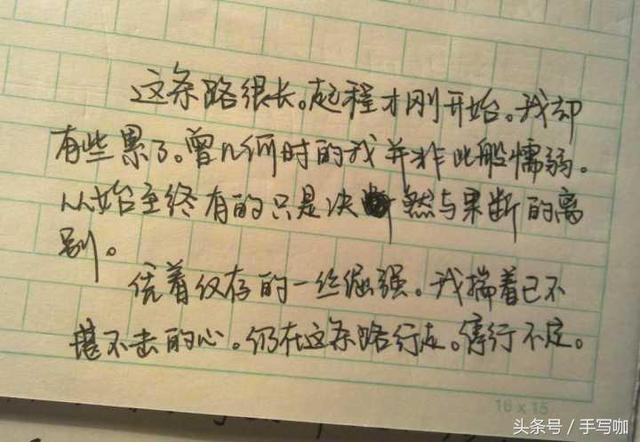 这条路很长。起程才刚开始。我却
有些累了。曾几何时的我并非此般懦弱。
从始至终有的只是决然与果断的离
别。
凭着仅存的一丝倔强。我揣着已不
堪不去的心。仍在这条路行走。停行不定。
16×15
头条号 / 手写咖